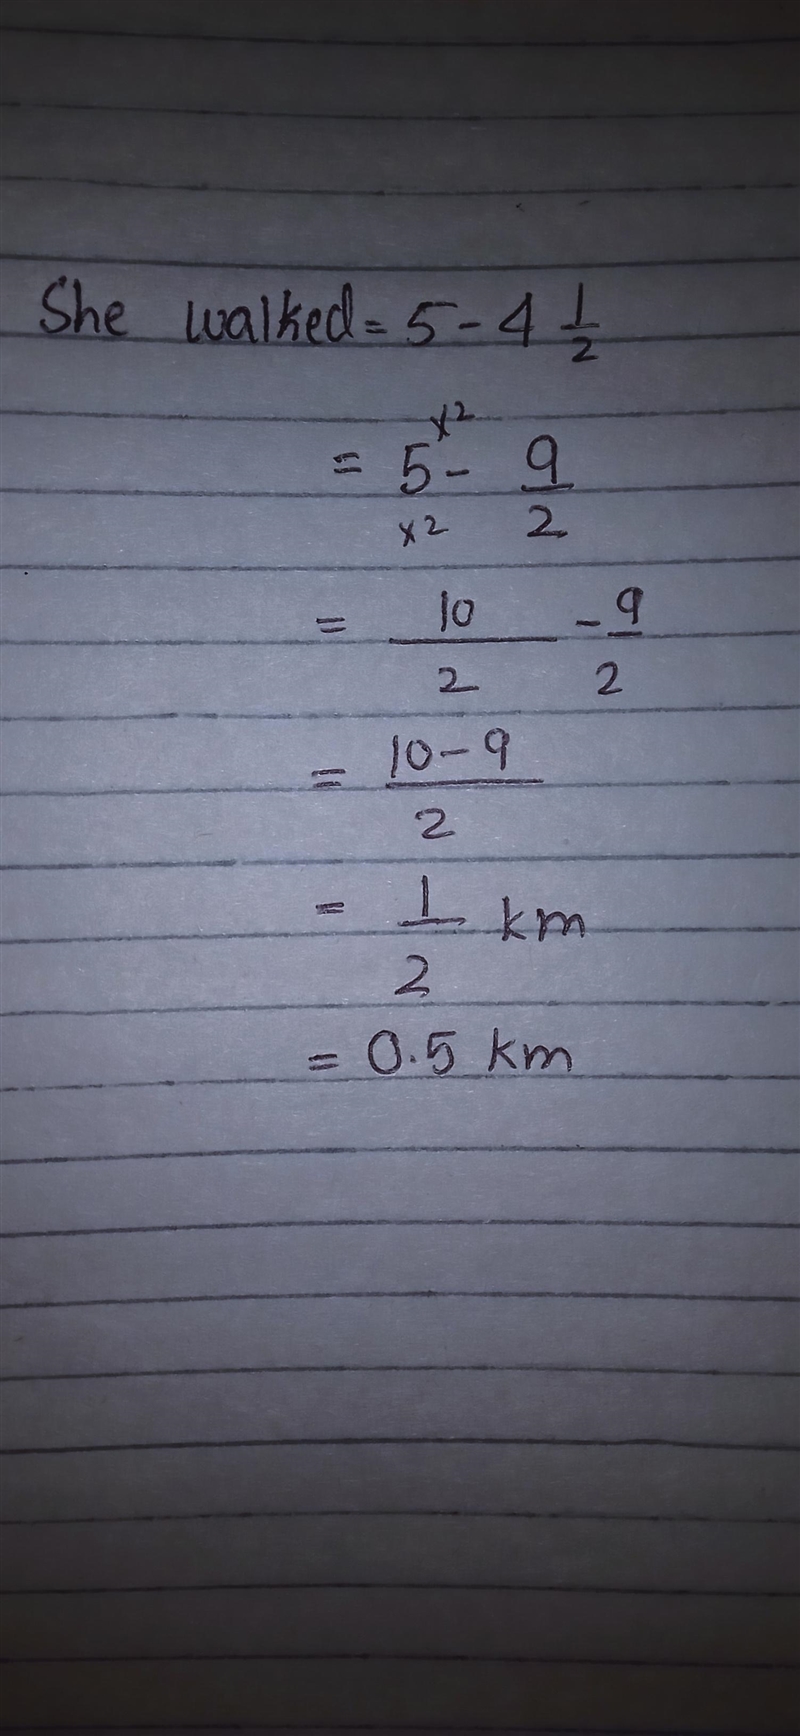 She walked = 5 - 4 1/2
= 5 ×2/×2 - 9/2
= 10/2 - 9/2
= 10-9/2
= 1/2 km
= 0.5 km